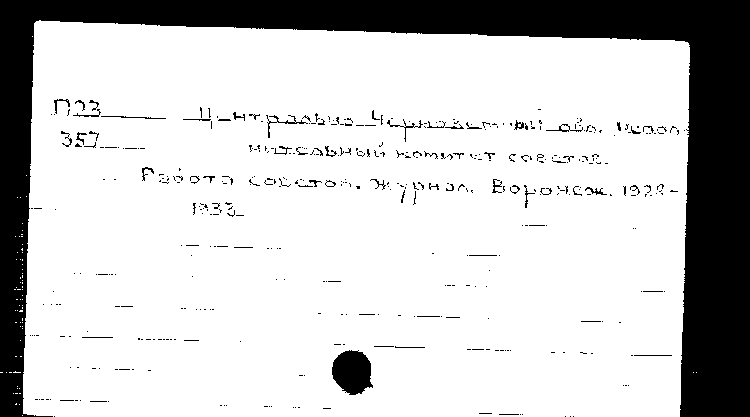 П23 Центрально-Черноземный обл. Испол-
357 нительный комитет советов.
Работа советов. Журнал. Воронеж. 1928-
1933